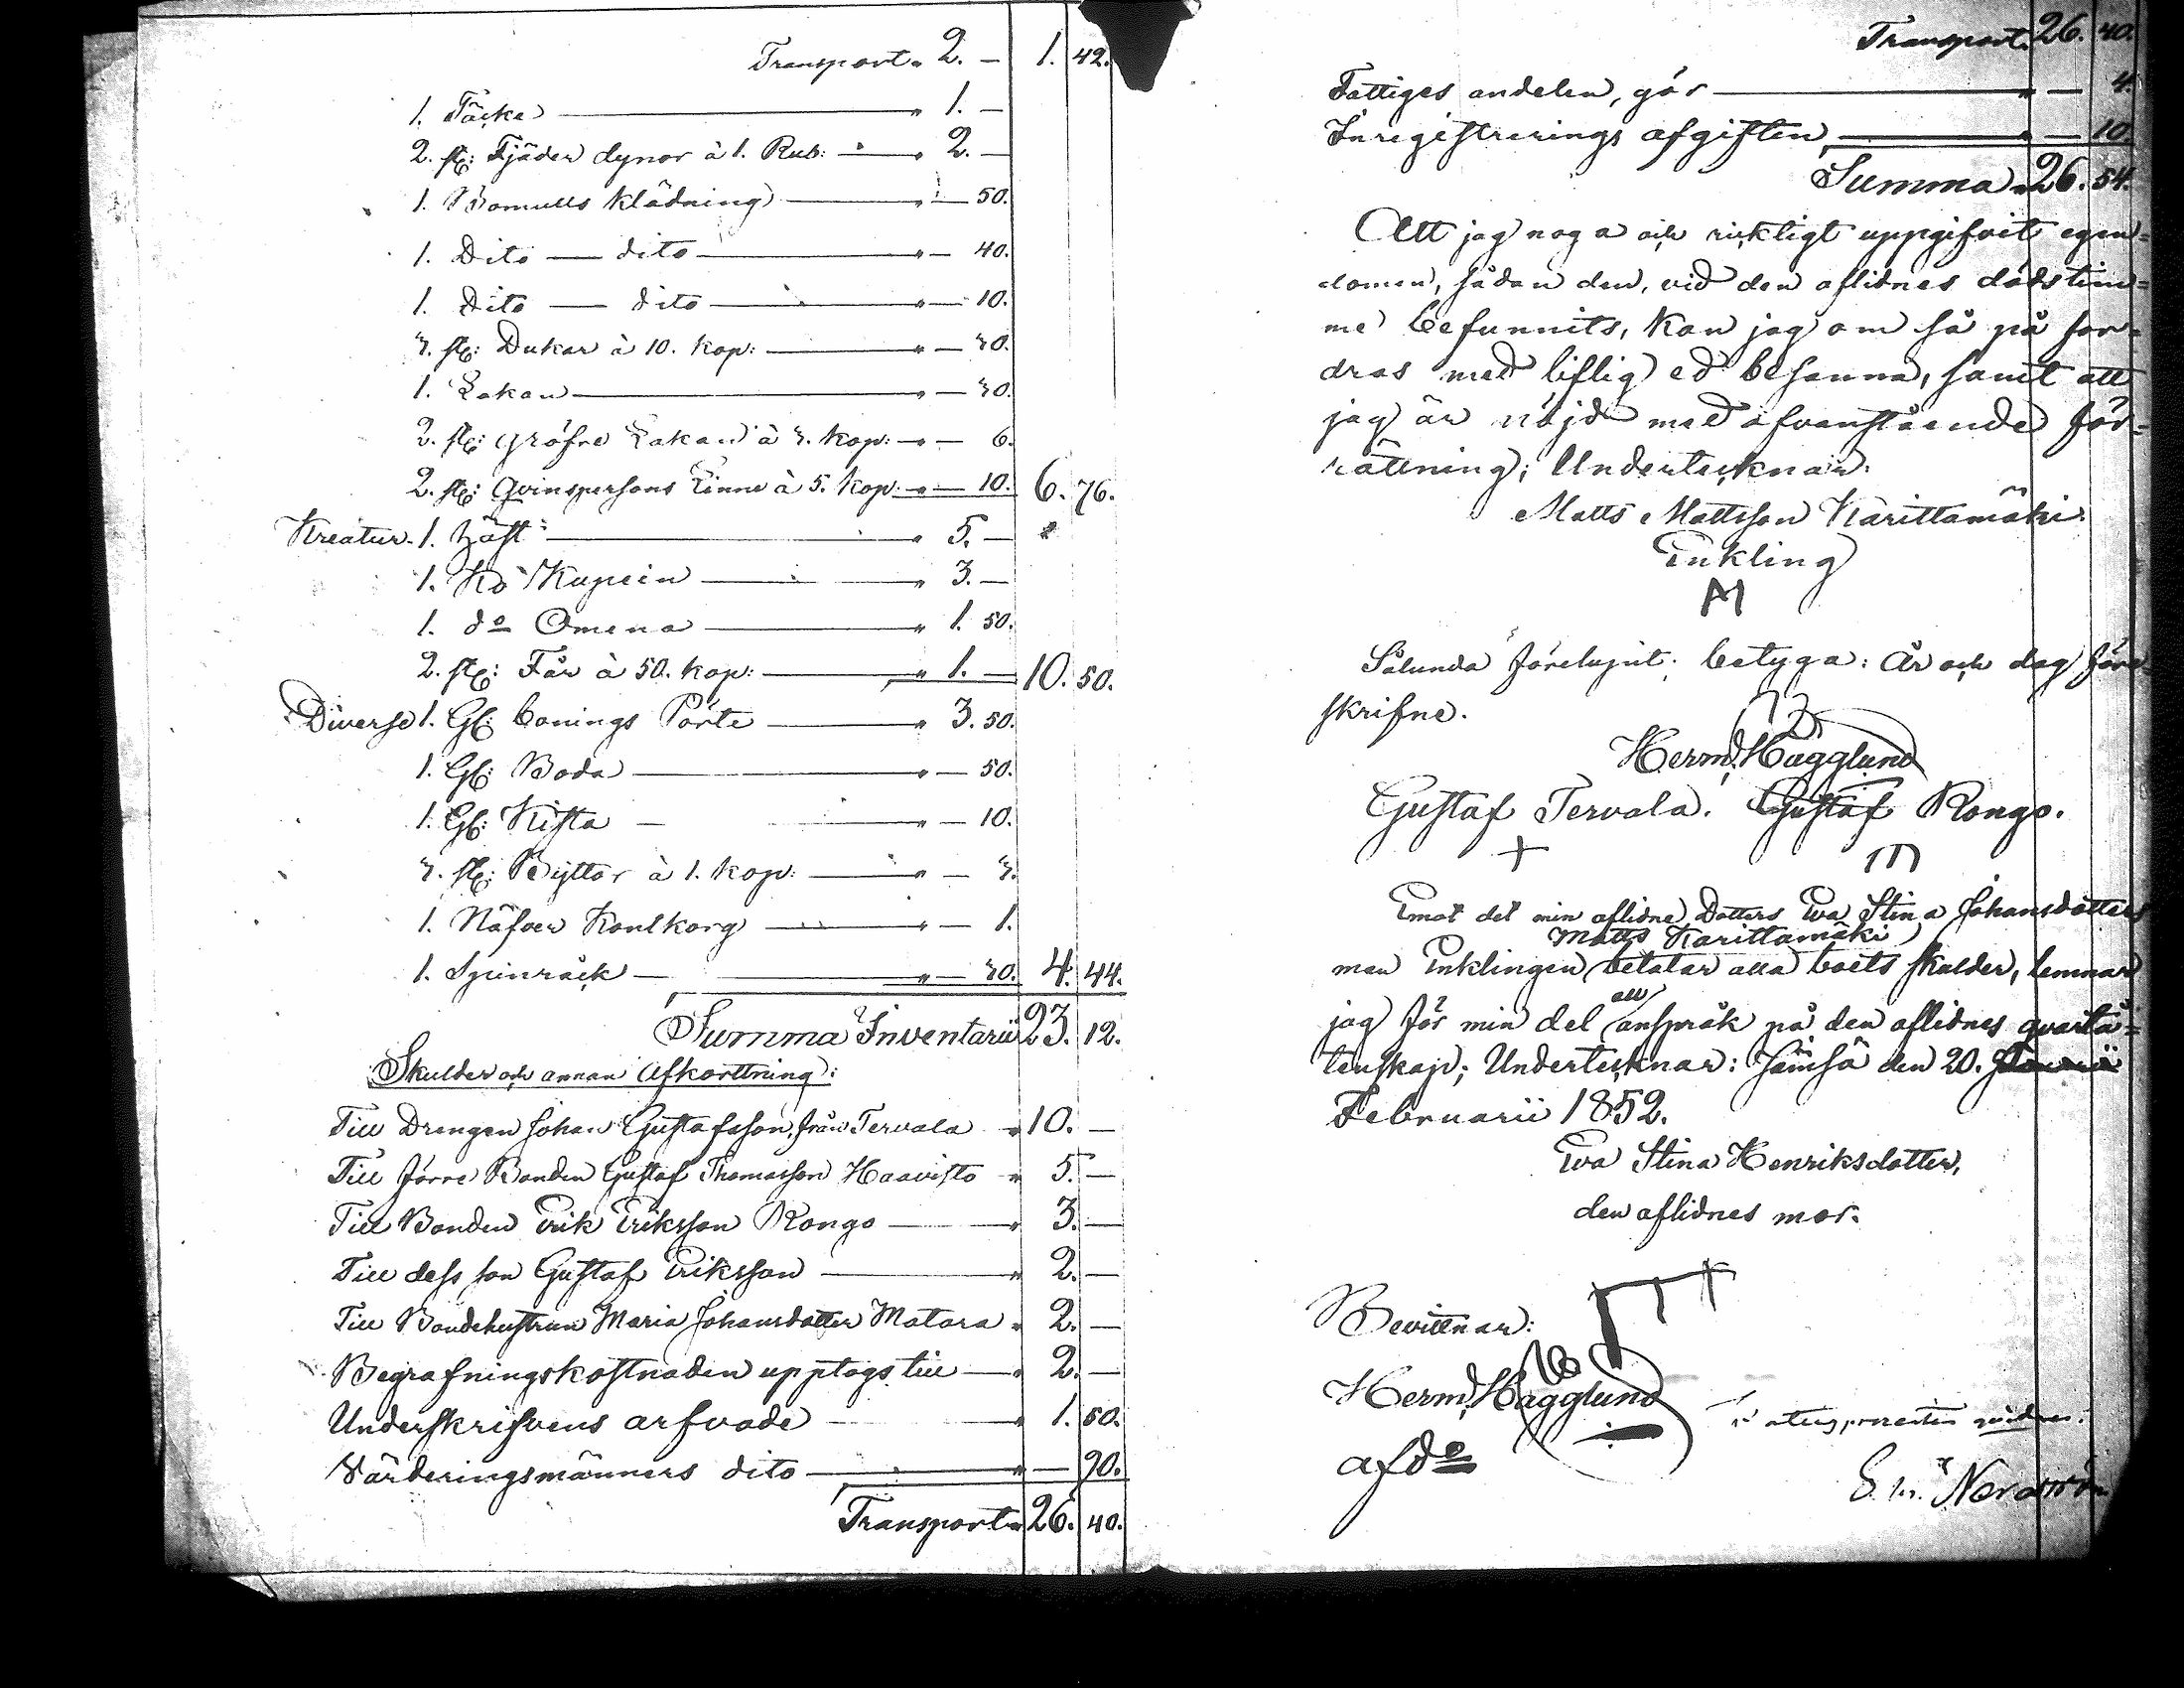 Transport „ 2. — 1. 42.
1. Täcke — „ 1. —
2. st: Fjäder dynor à 1. Rub: — „ 2. —
1. Bomulls klädning — „ — 50.
1. Dito — dito — „ — 40.
1. Dito — dito — „ — 10.
3. st: Dukar à 10. kop: — „ — 30.
1. Lakan — „ — 30.
2. st: gröfre Lakan à 3. kop: — „ — 6.
2. st: Qvinspersons Linne à 5. kop: — „ — 10. 6. 76.
Kreatur. 1. Häst — „ 5. —
1. Ko Kupein — „ 3. —
1. do Omena — „ 1. 50.
2. st: Får à 50. kop: — „ 1. — 10. 50.
Diverse 1. Gl: bonings Pörte — „ 3. 50.
1. Gl: Boda — „ — 50.
1. Gl: Kista — „ — 10.
3. st: Byttor à 1. kop: — „ — 3.
1. Näfver Kontkorg — „ — 1.
1. Spinråck — „ — 30. 4. 44.
Summa Inventarii 23. 12.
Skulder och annan Afkorttning:
Till Drengen Johan Gustafsson från Tervala „ 10. —
Till förre Bonden Gustaf Thomasson Haavisto „ 5. —
Till Bonden Erik Eriksson Rongo — „ 3. —
Till dess son Gustaf Eriksson — „ 2. —
Till Bondehustrun Maria Johansdotter Matara „ 2. —
Begrafningskostnaden upptogs till — „ 2. —
Underskrifvens arfvode — „ 1. 50.
Värderingsmänners dito — „ — 90.
Transport „ 26. 40.
Transport. 26. 40.
Fattiges andelen, gör — „ — 4.
Inregistrerings afgiften — „ — 10.
Summa „ 26. 54.
Att jag noga och ricktigt uppgifvit egen=
domen, sådan den, vid den aflidnes dödstim=
me befunnits, kan jag om så på for=
dras med liflig ed besanna, samt att
jag är nöjd med ofvanstående för=
rättning; Undertecknar.
Matts Mattsson Karittamäki
Enkling
M
Sålunda förelupit; betyga: År och dag före
skrifne.
Hermd. Hägglund
Gustaf Tervala. Gustaf Rongo.
+
Emot det min aflidne Dotters Eva Stina Johansdotters
Matts Karittamäki
man Enklingen betalar alla boets skulder, lemnar
all
jag för min del anspråk på den aflidnes qvarlå=
tenskap; Undertecknar: Jämsä den 20.
Februarii 1852.
Eva Stina Henriksdotter,
den aflidnes mor.
Bevittnar:
Hermd. Hägglund
afdo